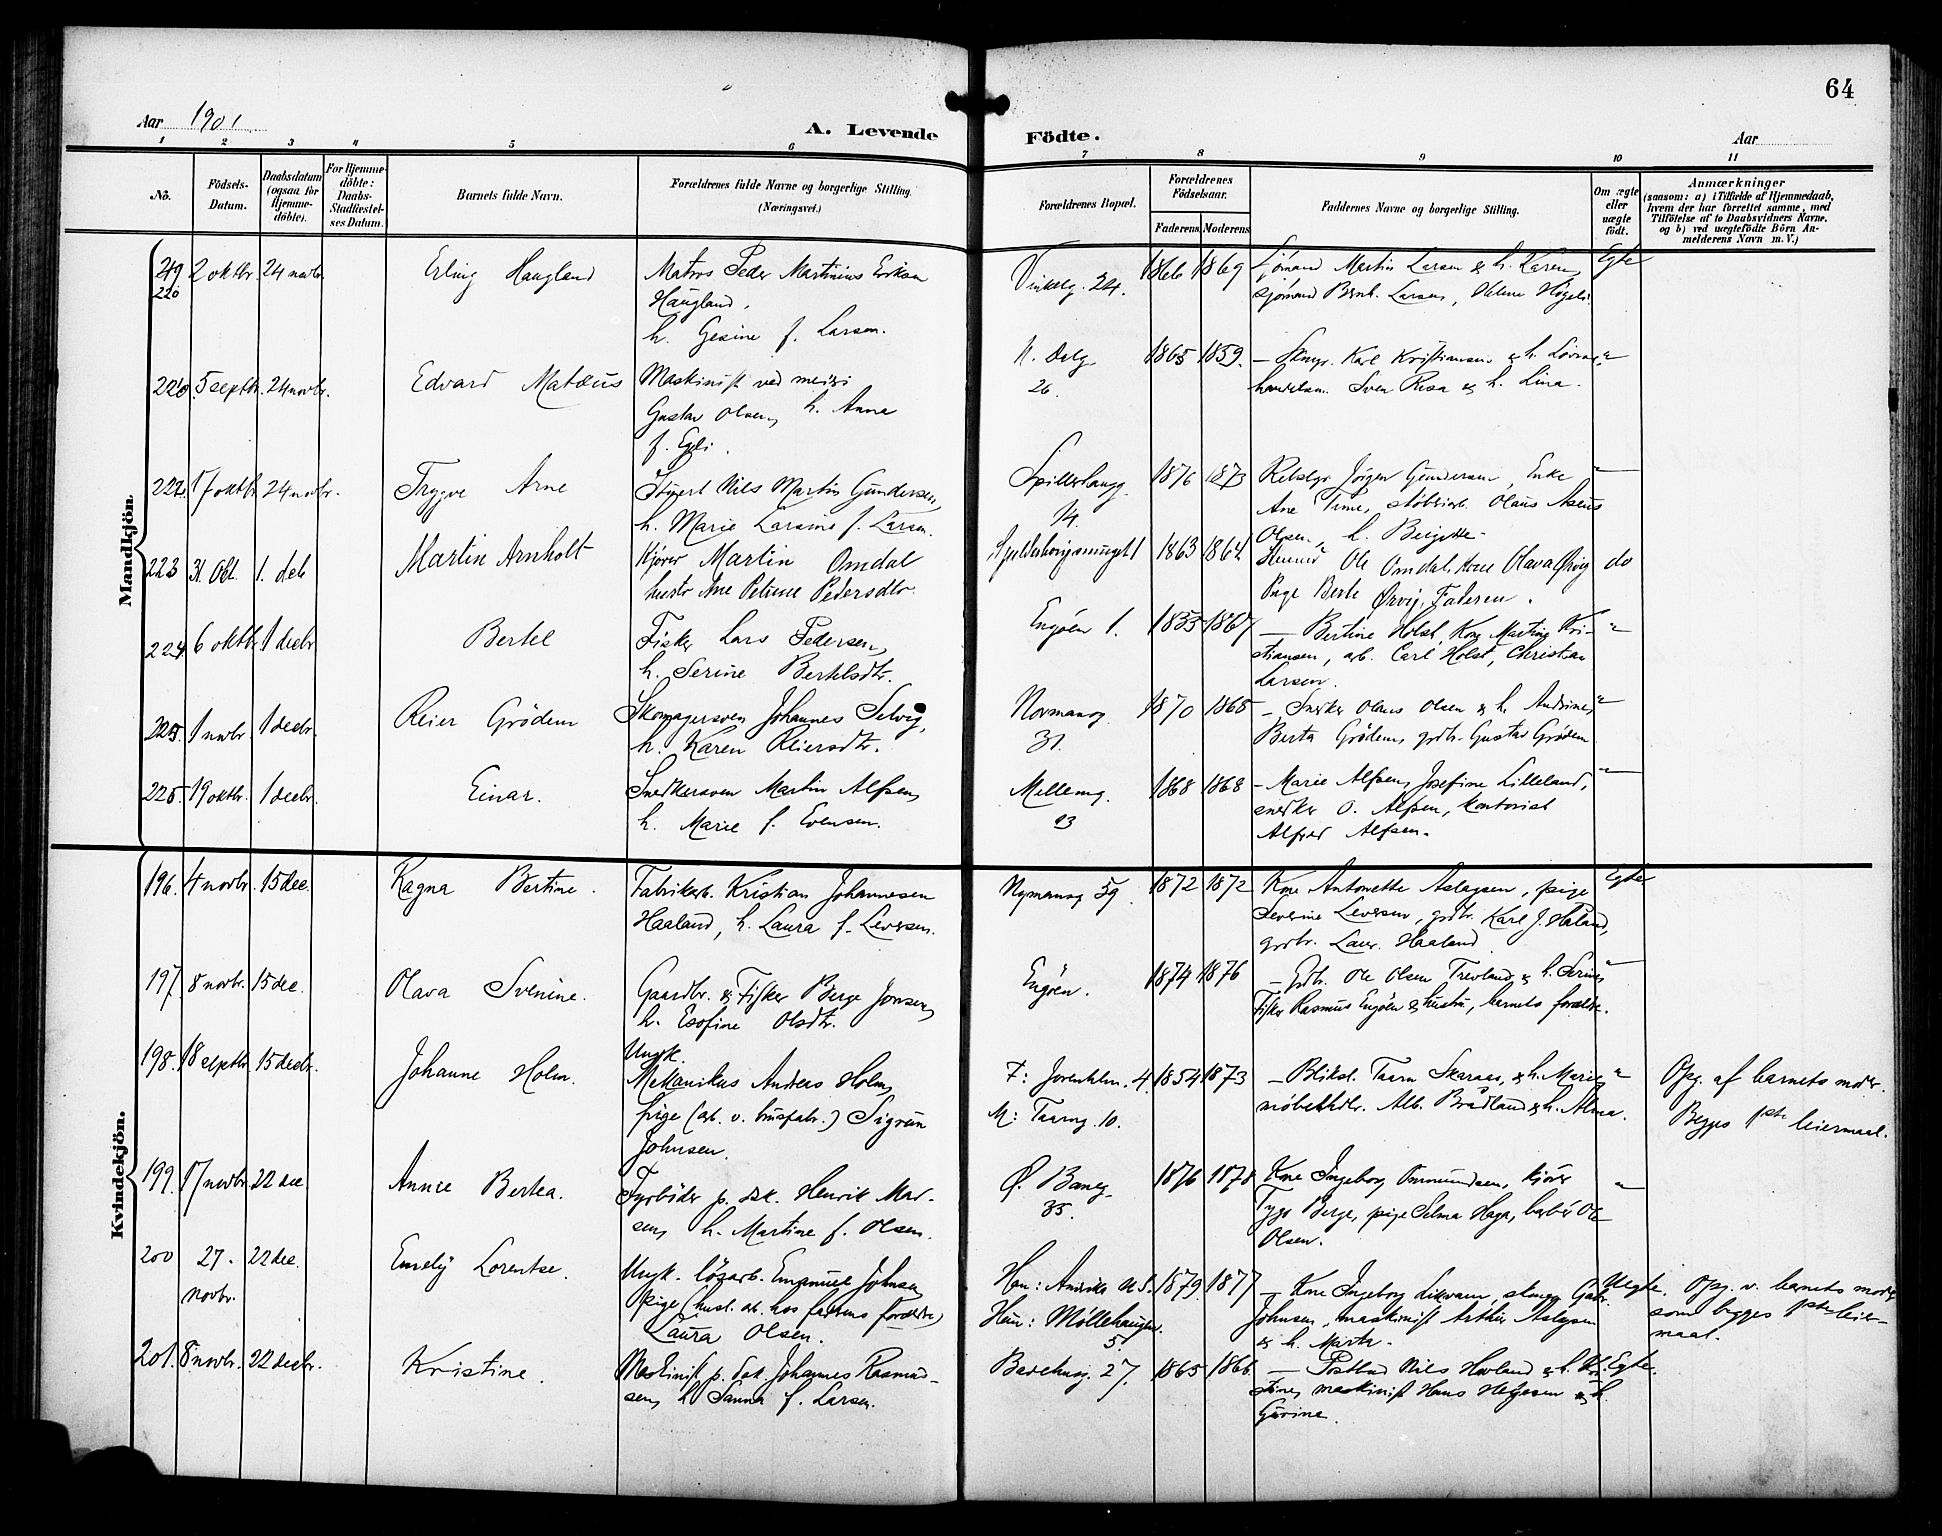 64
Aar 1901
A. Levende Födte.
Aar
1 2 3 4 5 6 7 8 9 10 11
No.
Födsels-Datum.
Daabsdatum (ogsaa for Hjemme-döbte).
For Hjemme-döbte: Daabs-Stadfæstel-ses Datum.
Barnets fulde Navn.
Forældrenes fulde Navne og borgerlige Stilling.
(Næringsvei.)
Forældrenes Bopæl.
Forældrenes Födselsaar.
Faderens Moderens
Faddernes Navne og borgerlige Stilling.
Om ægte eller uægte födt.
Anmærkninger
(saasom: a) i Tilfælde af Hjemmedaab,
hvem der har forrettet samme, med
Tilföielse af to Daabsvidners Navne,
og b) ved uægtefödte Börn An-
melderens Navn m. V.)
Mandkjön.
220 2 oktbr. 24 novbr. Erling Haugland
Matros Peder Martinius Eriksen
Haugland,
h. Gesine f. Larsen.
Vinkelg. 24. 1866 1869
Sjömand Martin Larsen & h. Karen,
sjömand Bernh. Larsen, Helene
Egte
5 septbr. 24 novbr. Edvard Matæus
Maskinist ved meieri
Gustav Olsen, h. Anna
f. Egeli.
N. Dalg. 26. 1865 1859.
Karl Kristiansen & h.
Sven Risa & h. Lina.
"
222. 17 oktbr. 24 novbr. Trygve Arne
Styert Nils Martin Gundersen,
h. Marie Larsine f. Larsen.
14. 1876 1873
Rebslgr. Jörgen Gundersen, Enke
Ane Time, Olaus Aseus
Olsen, h. Birgitte
"
223 31. Okt. 1. deb Martin Arnholt
Kjörer Martin Omdal
hustr Ane Petrine Pedersdtr.
1 1863 1864
Ole Omdal, Kone Olava Ørvig
Pige Berte Ørvig, Faderen.
do
224 6 oktbr. 1 decbr. Bertel
Fisker Lars Pedersen,
h. Serine Bertelsdtr.
Engöen 1. 1835 1867
— Bertine Holst, Kone Martine Kri-
stiansen, arb. Carl Holst, Christian
Larsen.
"
225. 1 novbr. 1 decbr. Reier Grödem
Skomagersven Johannes Selvig,
h. Karen Reiersdtr.
Normansg. 31. 1870 1868
— Snekker Olaus Olsen & h. Andrine,
Berta Grödem, grdbr. Gustav Grödem
"
19 oktbr. 1 decbr. Einar.
Snedkersven Martin Alfsen,
h. Marie f. Evensen.
1868 1868
— Marie Alfsen, Josefine Lilleland,
snedker O. Alfsen, kontorist
Alfred Alfsen.
"
Kvindekjön.
196. 4 novbr. 15 dec. Ragna Bertine.
Fabrikarb. Kristian Johannesen
Haaland, h. Laura f. Leversen.
Nymansg 59. 1872 1872
Kone Antonette Aslagsen, pige
Severine Leversen, grdbr. Karl J. Haland,
grdbr. Laur. Haaland
Egte
197. 8 novbr. 15 dec. Olava Svenine.
Gaardbr. & Fisker Berge Jonsen,
h. Esofine Olsdtr.
Engöen. 1874 1876
— Grdbr. Ole Olsen Trevland & h. Serine,
Fisker Rasmus Engöen & hustru, barnets forældre.
"
198. 18 septbr. 15 decbr. Johanne Holm.
Ungk.
Mekanikus Andreas Holm,
pige (arb. v. ) Sigrun
Johnsen.
F: 4. 1854 1873
M: Taarng. 10.
— Bliksl. Taarn Skaraas, & h. Marie,
möbelhdlr. Alb. Brådland & h. Alma.
"
Opg. af barnets moder.
Begges 1ste leiermaal.
199. 17 novbr. 22 dec Annie Bertea.
Fyrböder p. dsk. Henrik Mar-
sen, h. Martine f. Olsen.
Ø. Baneg. 35. 1876 1878
Kone Ingeborg Ommundsen, kjörer
Berge, pige Selma Haga, barbér Ole
Olsen.
"
200 27. novbr. 22 dec. Emely Lorentse.
Ungk. lösarb. Emanuel Johnsen
Pige (hush. arb. hos faderens forældre)
Laura Olsen.
Han: 5. 1879 1877
Hun: Möllehaugen 5.
— Kone Ingeborg Gabr.
Johnsen, maskinist Arthur Aslagsen
& h. Marta.
Uegte.
Opg. v. barnets moder
som begges 1ste leier-
maal.
201. 8 novbr. 22 decbr. Kristine.
Maskinist p. dsk. Johannes Rasmus-
sen, h. Sanna f. Larsen.
27. 1865 1866.
— Postbud Nils Havland & h.
maskinist Hans Helgesen & h.
Gurine.
Egte.